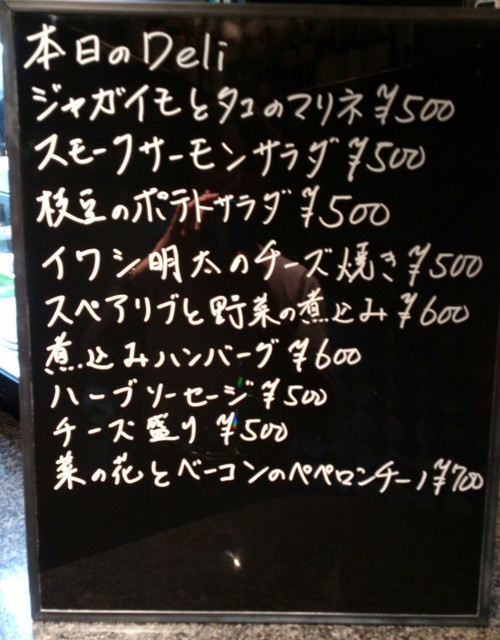 本日のDeli
ジャガイモとタコのマリネ ¥500
スモークサーモンサラダ ¥500
枝豆のポテトサラダ ¥500
イワシ明太のチーズ焼き ¥500
スペアリブと野菜の煮込み ¥600
煮込みハンバーグ ¥600
ハーブソーセージ ¥500
チーズ盛り ¥500
菜の花とベーコンのペペロンチーノ ¥700